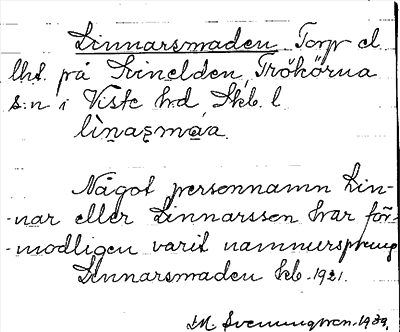 Linnarsmaden Torp el
lht. på Svinelden, Trökörna
s:n i Viste hd Skb. l.
Något personnamn Lin-
-nar eller Linnarsson har för-
-modligen varit namnursprung
Linnarsmaden kb. 1921.
M. Svenungsson. 1939.